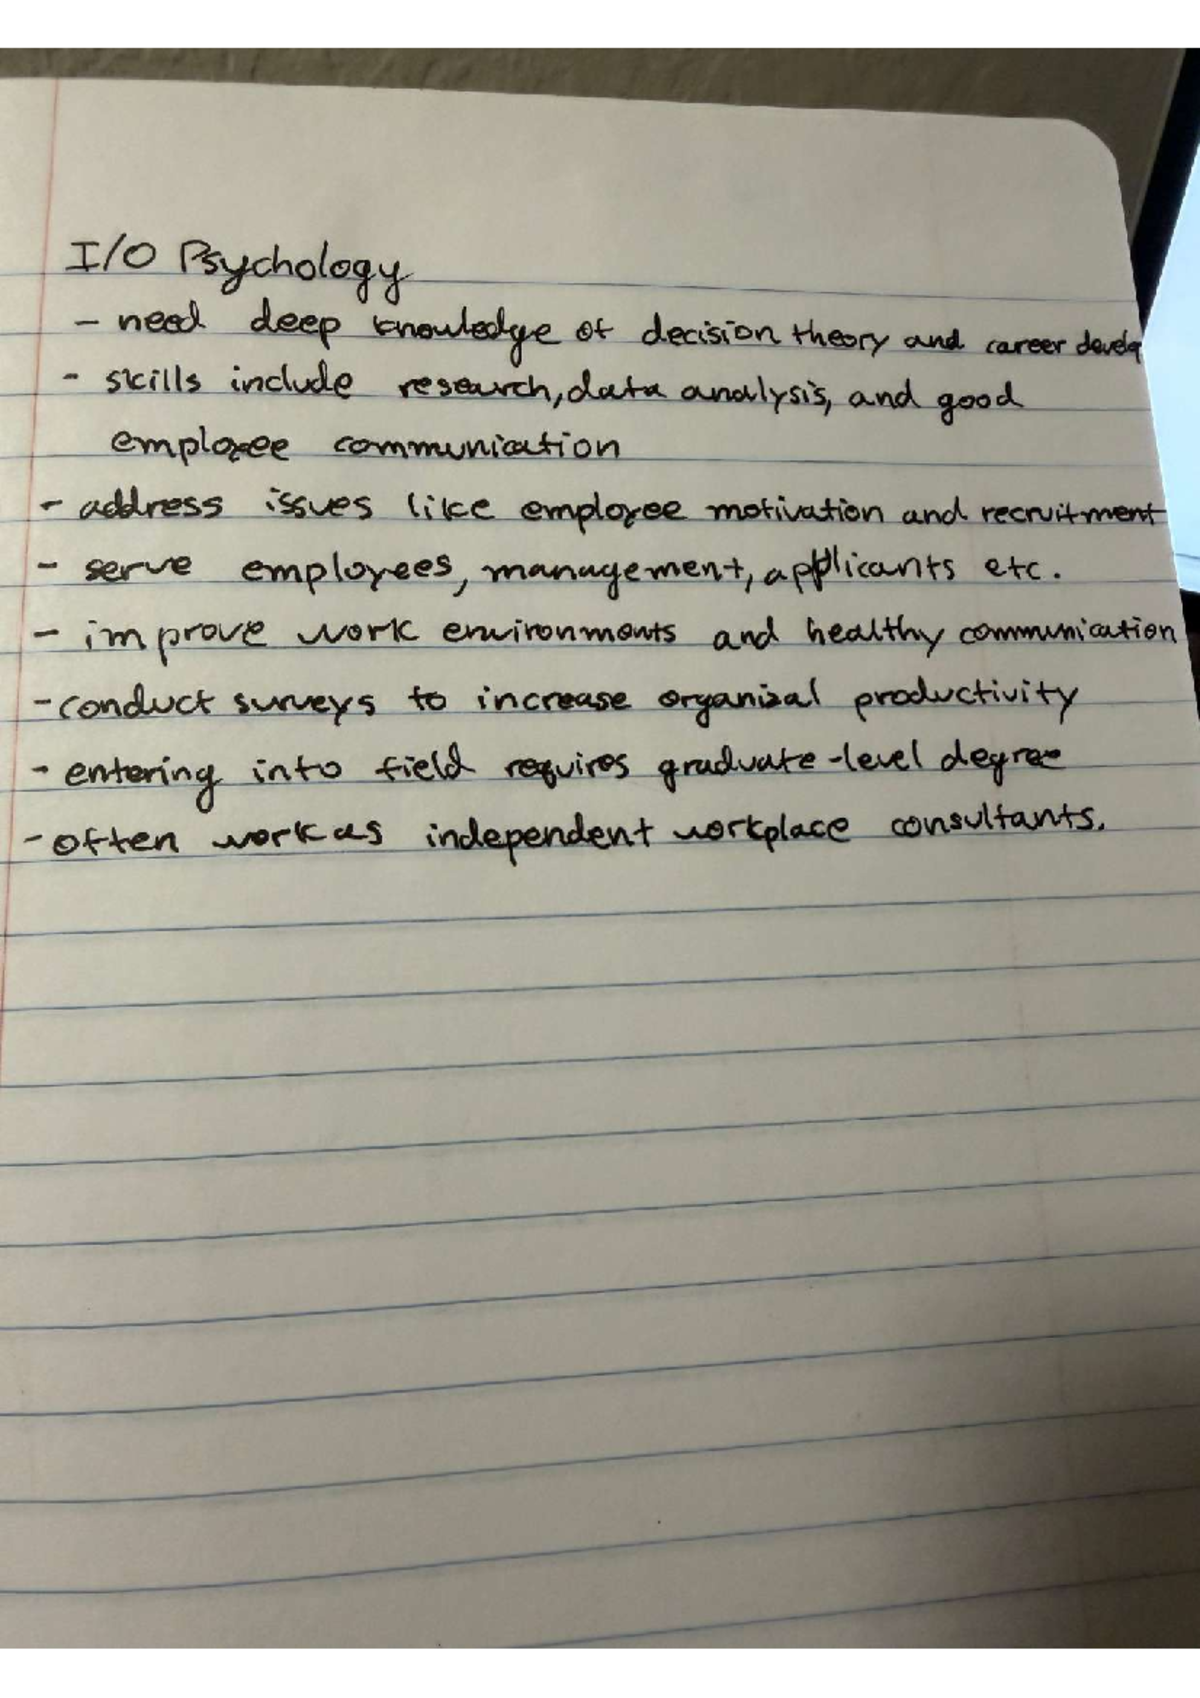 I/O Psychology
- need deep knowledge of decision theory and career develo
- skills include research, data analysis, and good
employee communication
- address issues like employee motivation and recruitment
- serve employees, management, applicants etc.
- improve work environments and healthy communication
- conduct surveys to increase organizal productivity
- entering into field requires graduate-level degree
- often work as independent workplace consultants.